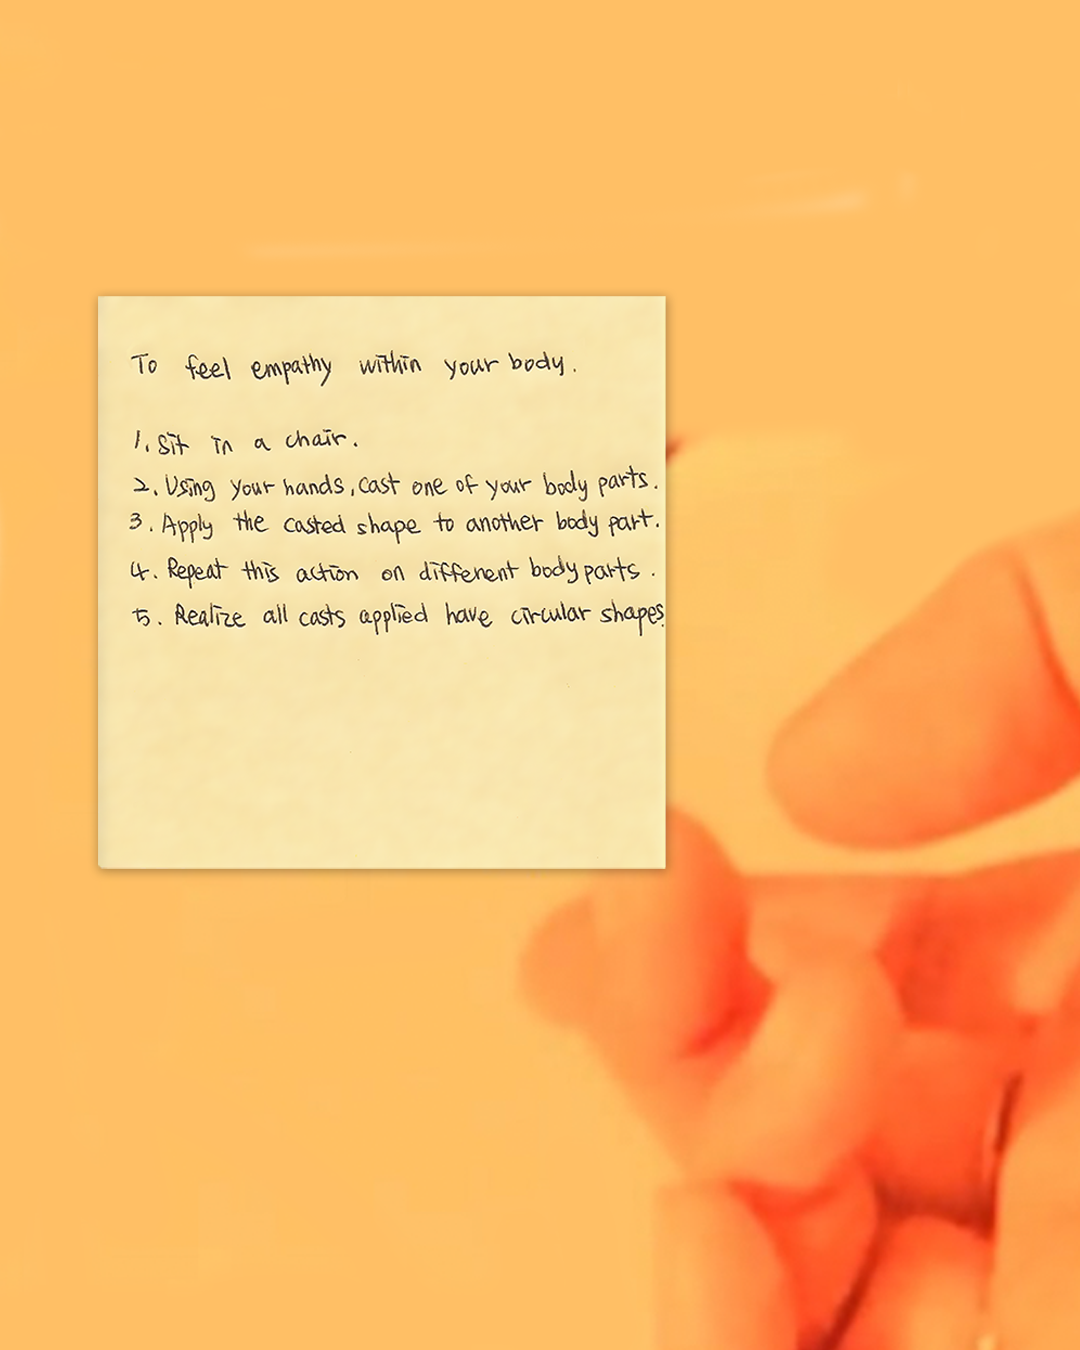 To feel empathy within your body.
1. Sit in a chair.
2. Using your hands, cast one of your body parts.
3. Apply the casted shape to another body part.
4. Repeat this action on different body parts.
5. Realize all casts applied have circular shapes.